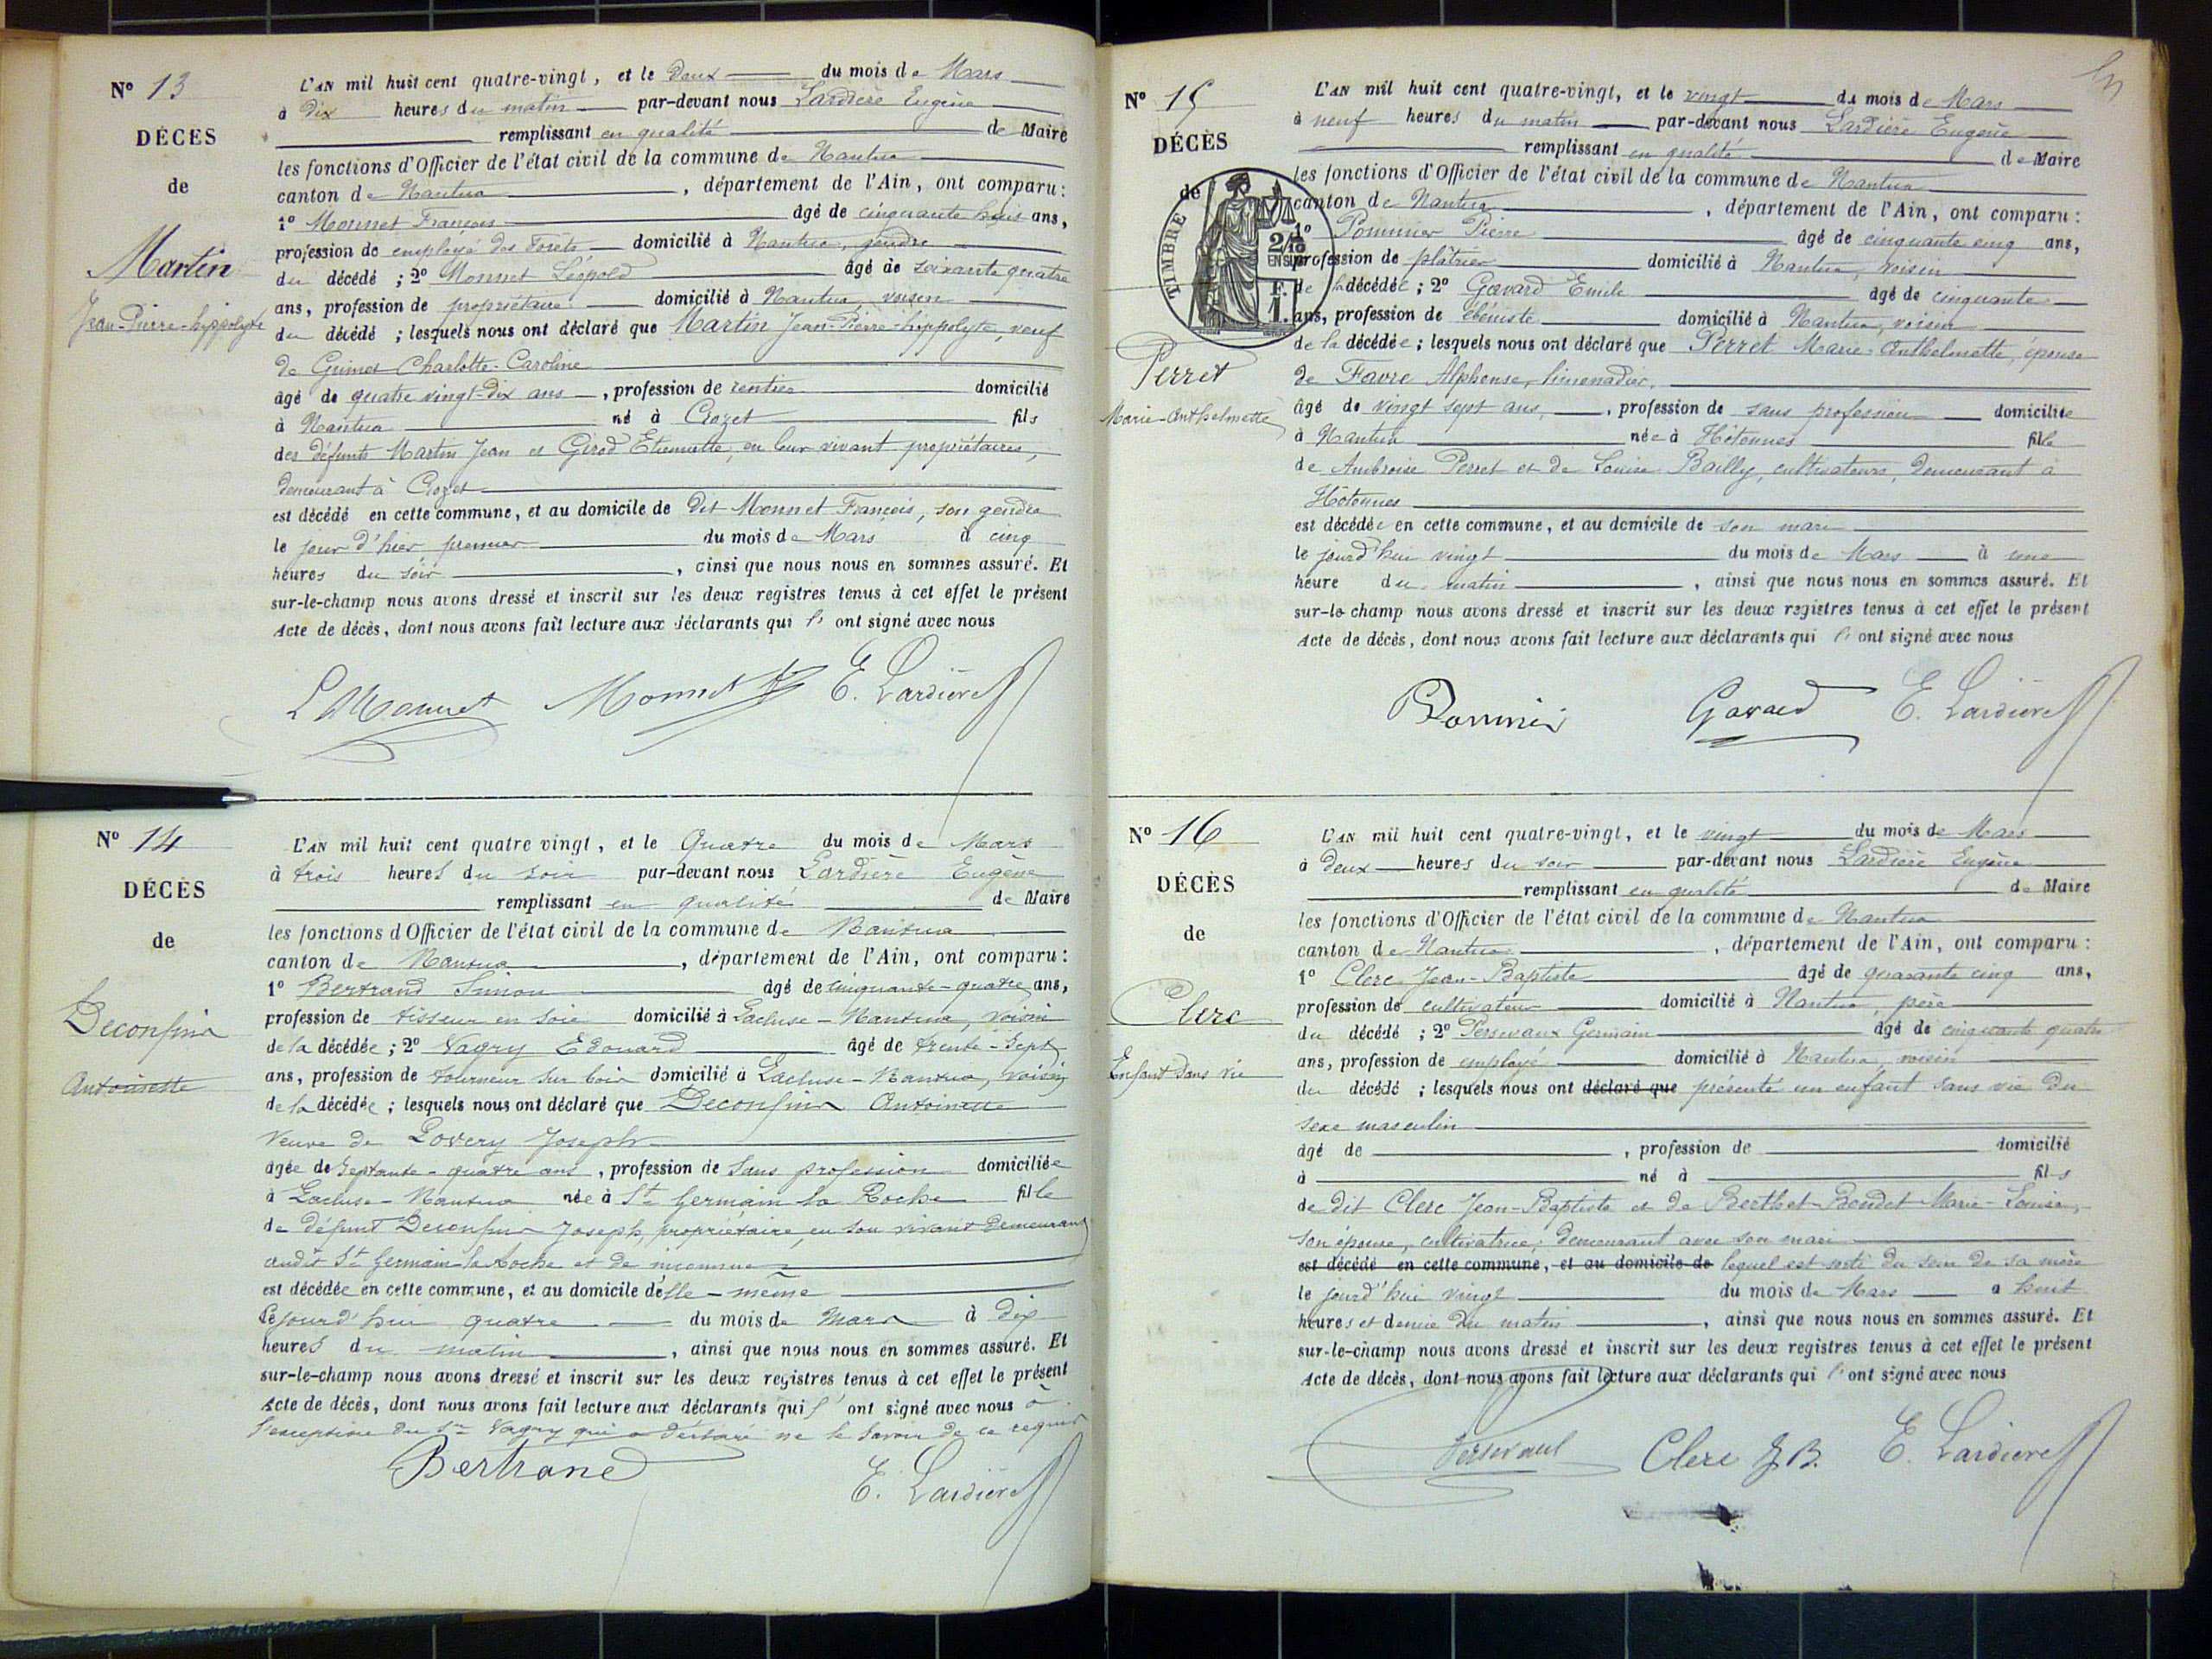 N° 13
DÉCÈS
de
Martin
Jean-Pierre-hippolyte
L'AN mil huit cent quatre-vingt, et le Deux du mois de Mars
à Dix heures du matin par-devant nous Lardière Eugène
remplissant en qualité de Maire
les fonctions d'Officier de l'état civil de la commune de Nantua
canton de Nantua, département de l'Ain, ont comparu:
1° Monnet François âgé de cinquante huit ans,
profession de employé des Forêts domicilié à Nantua, gendre
du décédé ; 2° Monnet Léopold âgé de soixante quatre
ans, profession de propriétaire domicilié à Nantua, voisin
du décédé ; lesquels nous ont déclaré que Martin Jean-Pierre-hippolyte, veuf
de Grimet Charlotte-Caroline
âgé de quatre vingt-dix ans, profession de rentier domicilié
à Nantua né à Crozet fils
des défunts Martin Jean et Girod Etiennette, en leur vivant propriétaires,
demeurant à Crozet
est décédé en cette commune, et au domicile de Dit Monnet François, son gendre
le jour d'hier premier du mois de Mars à cinq
heures du soir, ainsi que nous nous en sommes assuré. Et
sur-le-champ nous avons dressé et inscrit sur les deux registres tenus à cet effet le présent
Acte de décès, dont nous avons fait lecture aux déclarants qui l' ont signé avec nous
L Monnet Monnet E. Lardière
N° 14
DÉCÈS
de
Deconfin
Antoinette
L'AN mil huit cent quatre vingt, et le Quatre du mois de Mars
à trois heures du soir par-devant nous Lardière Eugène
remplissant en qualité de Maire
les fonctions d'Officier de l'état civil de la commune de Nantua
canton de Nantua, département de l'Ain, ont comparu:
1° Bertrand Simon âgé de cinquante-quatre ans,
profession de tisseur en soie domicilié à Lacluse-Nantua, voisin
de la décédée ; 2° Vagry Edouard âgé de trente-sept
ans, profession de tourneur sur bois domicilié à Lacluse-Nantua, voisin
de la décédée ; lesquels nous ont déclaré que Deconfin Antoinette
Veuve de Lovery Joseph
âgée de Septante-quatre ans, profession de Sans profession domiciliée
à Lacluse-Nantua née à St Germain la Roche fille
de défunt Deconfin Joseph, propriétaire, en son vivant demeurant
audit St Germain la Roche et de inconnue
est décédée en cette commune, et au domicile d'elle-même
le jourd'hui quatre du mois de Mars à dix
heures du matin, ainsi que nous nous en sommes assuré. Et
sur-le-champ nous avons dressé et inscrit sur les deux registres tenus à cet effet le présent
Acte de décès, dont nous avons fait lecture aux déclarants qui l' ont signé avec nous à
l'exception du Sr Vagry qui a déclaré ne le savoir de ce requis
Bertrand E. Lardière
N° 15
DÉCÈS
de
TIMBRE
2/10
EN SUS
F.
1.
Perret
Marie-Anthelmette
L'AN mil huit cent quatre-vingt, et le vingt du mois de Mars
à neuf heures du matin par-devant nous Lardière Eugène
remplissant en qualité de Maire
les fonctions d'Officier de l'état civil de la commune de Nantua
canton de Nantua, département de l'Ain, ont comparu:
1° Pommier Pierre âgé de cinquante cinq ans,
profession de plâtrier domicilié à Nantua, voisin
de la décédée ; 2° Gavard Emile âgé de cinquante
ans, profession de ébéniste domicilié à Nantua, voisin
de la décédée ; lesquels nous ont déclaré que Perret Marie-Anthelmette, épouse
de Favre Alphonse, limonadier,
âgé de vingt sept ans, profession de sans profession domiciliée
à Nantua née à Hotonnes fille
de Ambroise Perret et de Louise Bailly, cultivateurs, demeurant à
Hotonnes
est décédée en cette commune, et au domicile de son mari
le jourd'hui vingt du mois de Mars à une
heure du matin, ainsi que nous nous en sommes assuré. Et
sur-le-champ nous avons dressé et inscrit sur les deux registres tenus à cet effet le présent
Acte de décès, dont nous avons fait lecture aux déclarants qui l' ont signé avec nous
Pommier Gavard E. Lardière
N° 16
DÉCÈS
de
Clerc
Enfant sans vie
L'AN mil huit cent quatre-vingt, et le vingt du mois de Mars
à deux heures du soir par-devant nous Lardière Eugène
remplissant en qualité de Maire
les fonctions d'Officier de l'état civil de la commune de Nantua
canton de Nantua, département de l'Ain, ont comparu:
1° Clerc Jean-Baptiste âgé de quarante cinq ans,
profession de cultivateur domicilié à Nantua, père
du décédé ; 2° Persevaux Germain âgé de cinquante quatre
ans, profession de employé domicilié à Nantua, voisin
du décédé ; lesquels nous ont déclaré que présenté un enfant sans vie du
sexe masculin
âgé de , profession de domicilié
à né à fils
de dit Clerc Jean-Baptiste et de Berthet-Bondet Marie-Louise,
son épouse, cultivatrice, demeurant avec son mari
est décédé en cette commune, et au domicile de lequel est sorti du sein de sa mère
le jourd'hui vingt du mois de Mars à huit
heures et demie du matin, ainsi que nous nous en sommes assuré. Et
sur-le-champ nous avons dressé et inscrit sur les deux registres tenus à cet effet le présent
Acte de décès, dont nous avons fait lecture aux déclarants qui l' ont signé avec nous
Clerc J B. E. Lardière